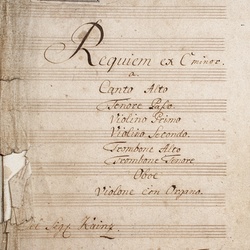 Requiem ex C minor.
a
Canto Alto
Tenore Basso
Violino Primo
Violino Secondo.
Trombone Alto
Trombone Tenore
Oboe
Violone Con Organo.
Del Sig: Kainz.